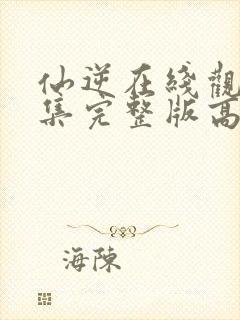 仙逆在线觀
集完整版高
海陳